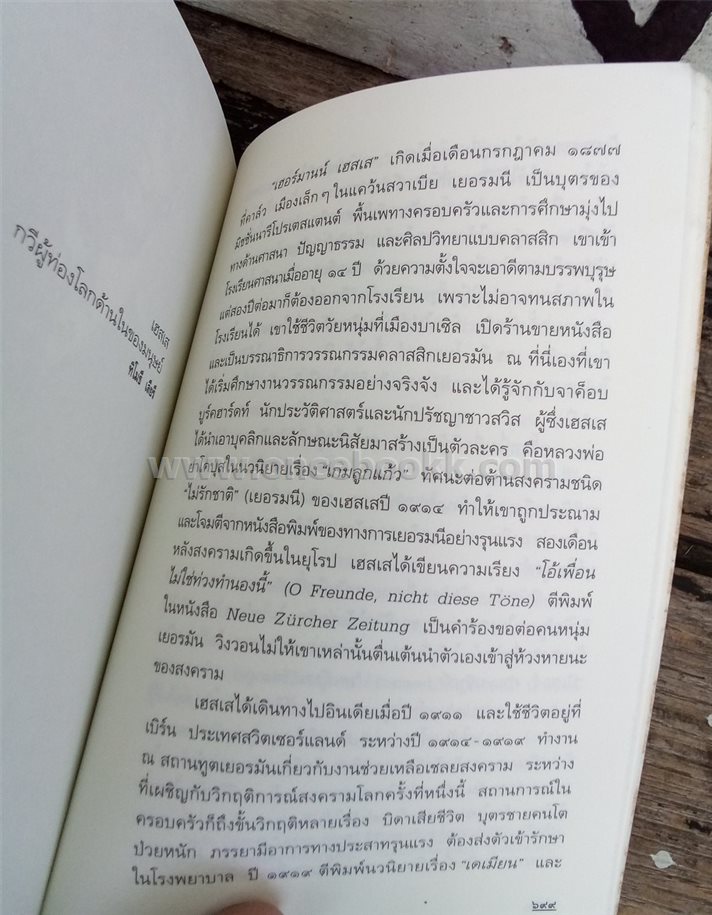 เฮสเส
กวีผู้ท่องโลกด้านในของมนุษย์
ทิโมธี เลียรี
"เฮอร์มานน์ เฮสเส" เกิดเมื่อเดือนกรกฎาคม ๑๘๗๗
ที่คาล์ว เมืองเล็กๆ ในแคว้นสวาเบีย เยอรมนี เป็นบุตรของ
มิชชั่นนารีโปรเตสแตนต์ พื้นเพทางครอบครัวและการศึกษามุ่งไป
ทางด้านศาสนา ปัญญาธรรม และศิลปวิทยาแบบคลาสสิก เขาเข้า
โรงเรียนศาสนาเมื่ออายุ ๑๔ ปี ด้วยความตั้งใจจะเอาดีตามบรรพบุรุษ
แต่สองปีต่อมาก็ต้องออกจากโรงเรียน เพราะไม่อาจทนสภาพใน
โรงเรียนได้ เขาใช้ชีวิตวัยหนุ่มที่เมืองบาเซิล เปิดร้านขายหนังสือ
และเป็นบรรณาธิการวรรณกรรมคลาสสิกเยอรมัน ณ ที่นี่เองที่เขา
ได้เริ่มศึกษางานวรรณกรรมอย่างจริงจัง และได้รู้จักกับจาค็อบ
บูร์คฮาร์ดท์ นักประวัติศาสตร์และนักปรัชญาชาวสวิส ผู้ซึ่งเฮสเส
ได้นำเอาบุคลิกและลักษณะนิสัยมาสร้างเป็นตัวละคร คือหลวงพ่อ
ยาโคบุสในนวนิยายเรื่อง "เกมลูกแก้ว" ทัศนะต่อต้านสงครามชนิด
"ไม่รักชาติ" (เยอรมนี) ของเฮสเสปี ๑๙๑๔ ทำให้เขาถูกประณาม
และโจมตีจากหนังสือพิมพ์ของทางการเยอรมนีอย่างรุนแรง สองเดือน
หลังสงครามเกิดขึ้นในยุโรป เฮสเสได้เขียนความเรียง "โอ้เพื่อน
ไม่ใช่ท่วงทำนองนี้" (O Freunde, nicht diese Töne) ตีพิมพ์
ในหนังสือ Neue Zürcher Zeitung เป็นคำร้องขอต่อคนหนุ่ม
เยอรมัน วิงวอนไม่ให้เขาเหล่านั้นตื่นเต้นนำตัวเองเข้าสู่ห้วงหายนะ
ของสงคราม
เฮสเสได้เดินทางไปอินเดียเมื่อปี ๑๙๑๑ และใช้ชีวิตอยู่ที่
เบิร์น ประเทศสวิตเซอร์แลนด์ ระหว่างปี ๑๙๑๔-๑๙๑๙ ทำงาน
ณ สถานทูตเยอรมันเกี่ยวกับงานช่วยเหลือเชลยสงคราม ระหว่าง
ที่เผชิญกับวิกฤติการณ์สงครามโลกครั้งที่หนึ่งนี้ สถานการณ์ใน
ครอบครัวก็ถึงขั้นวิกฤติหลายเรื่อง บิดาเสียชีวิต บุตรชายคนโต
ป่วยหนัก ภรรยามีอาการทางประสาทรุนแรง ต้องส่งตัวเข้ารักษา
ในโรงพยาบาล ปี ๑๙๑๙ ตีพิมพ์นวนิยายเรื่อง "เดเมียน" และ
๖๙๙